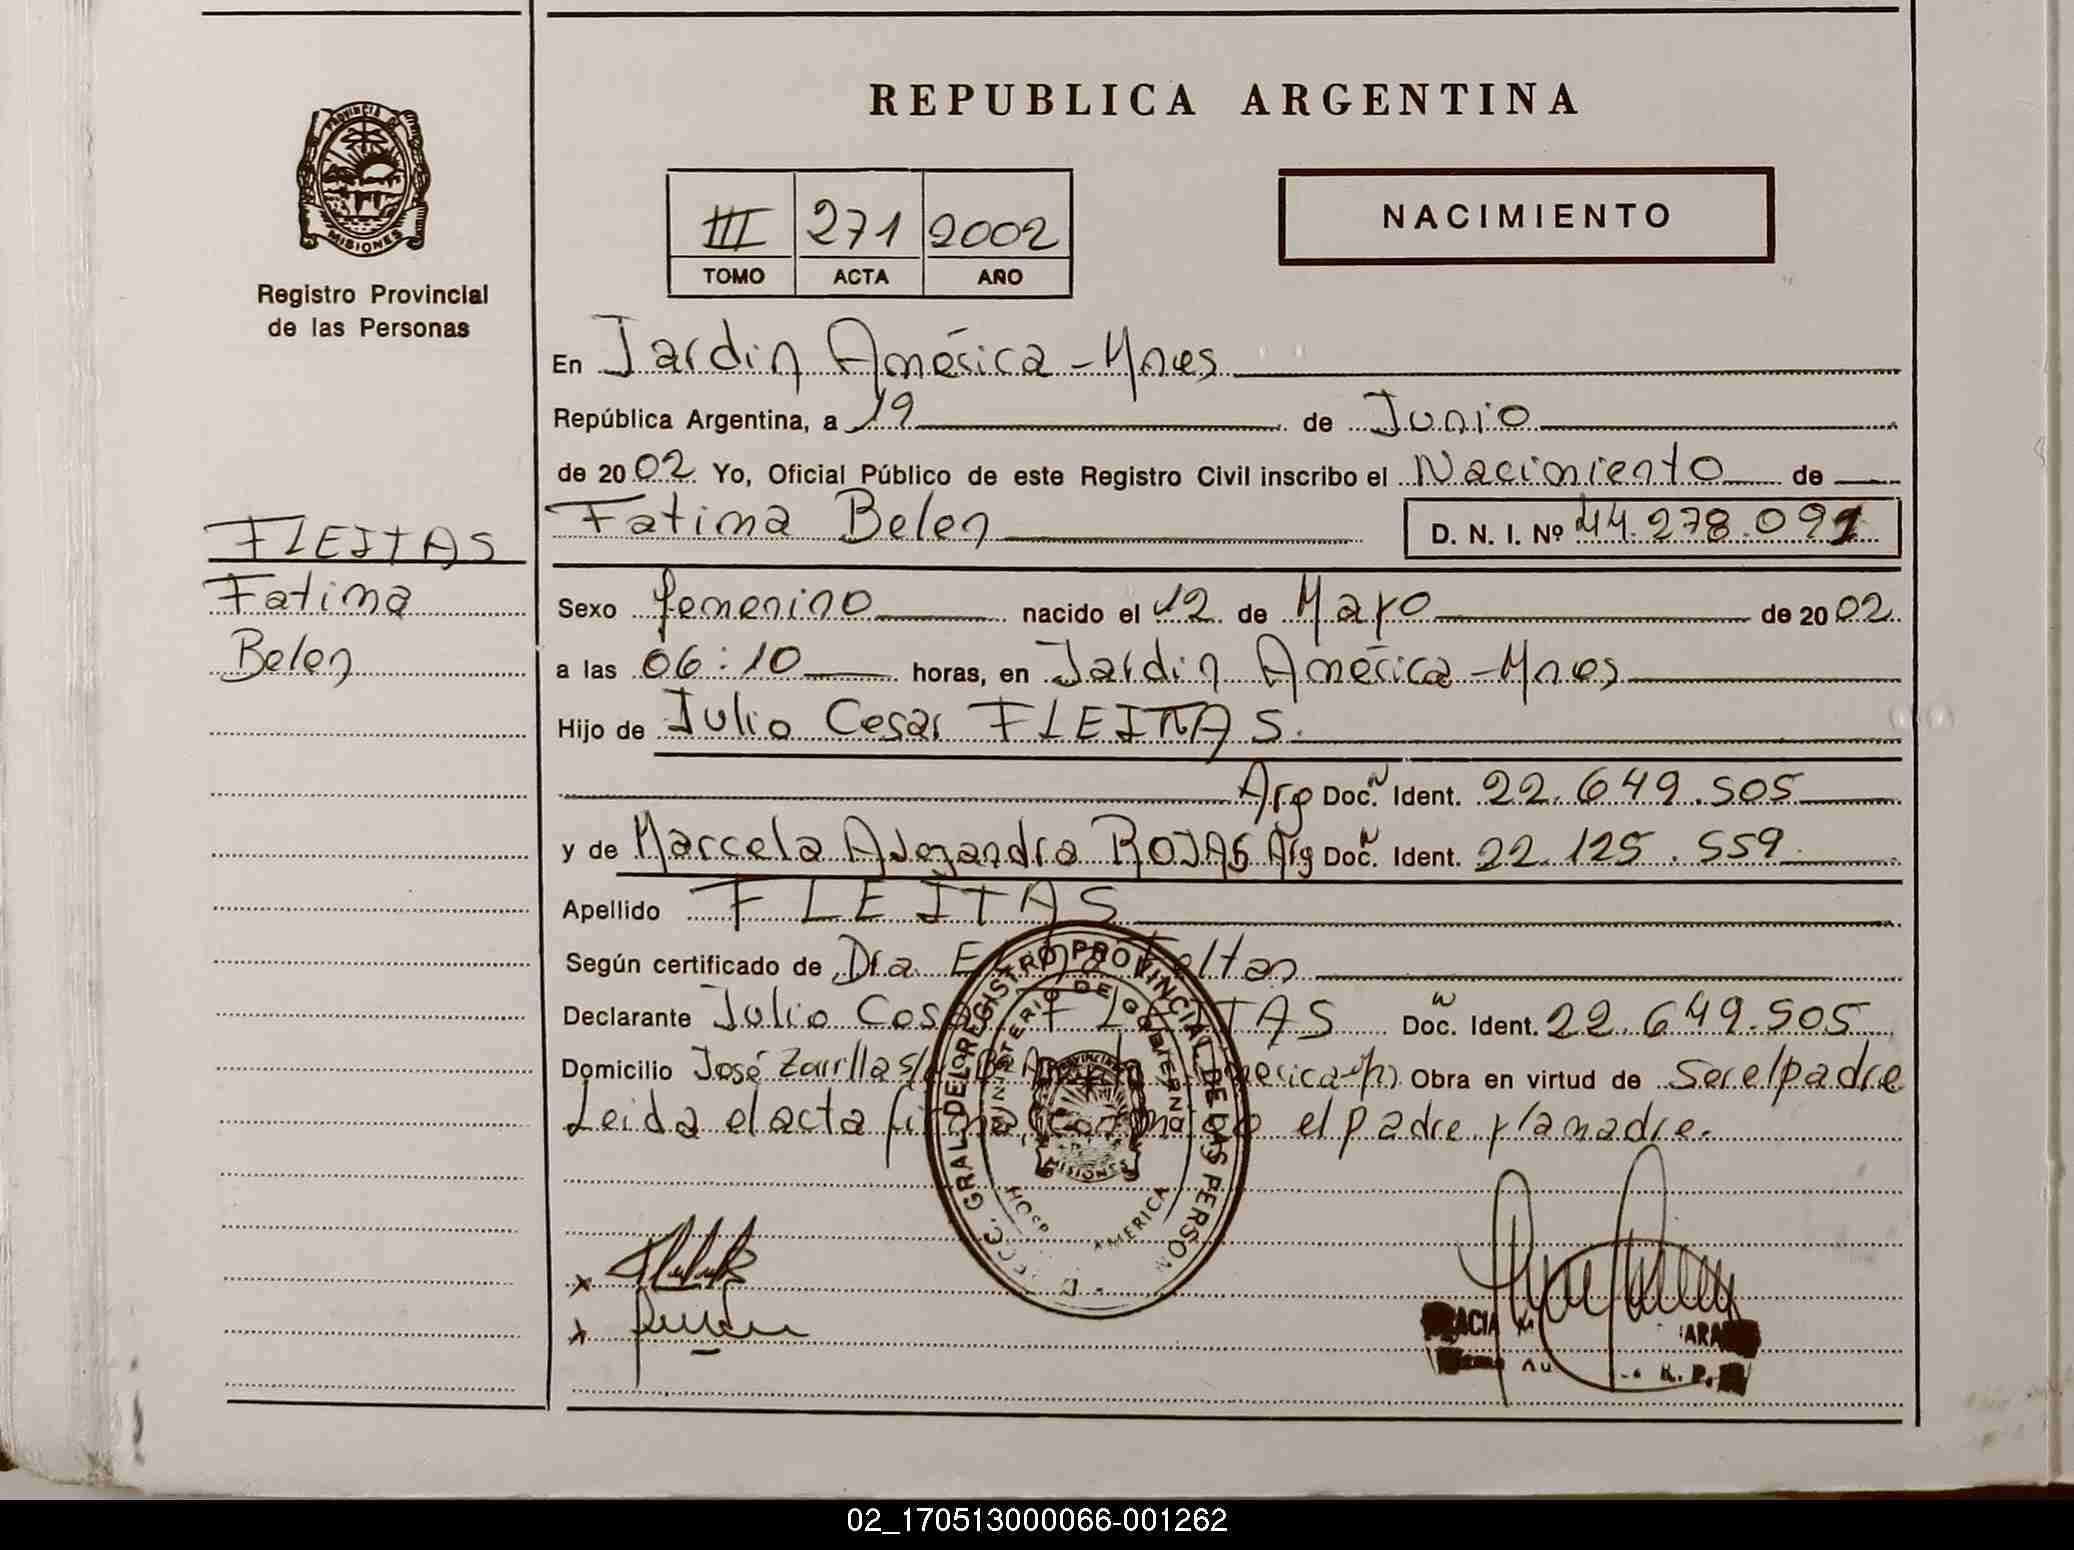 REPUBLICA ARGENTINA
PROVINCIA DE MISIONES
Registro Provincial
de las Personas
III 271 2002
TOMO ACTA AÑO
NACIMIENTO
En Jardin América - Mnes
República Argentina, a 19 de Junio
de 2002 Yo, Oficial Público de este Registro Civil inscribo el Nacimiento de
FLEITAS
Fatima
Belen
Fatima Belen D. N. I. Nº 44.278.091
Sexo femenino nacido el 12 de Mayo de 2002
a las 06:10 horas, en Jardin América - Mnes
Hijo de Julio Cesar FLEITAS.
Arg Doc. Ident. 22.649.505
y de Marcela Alejandra ROJAS Arg Doc. Ident. 22.125.559
Apellido FLEITAS
Según certificado de Dra.
Declarante Julio Cesar FLEITAS Doc. Ident. 22.649.505
Domicilio José Obra en virtud de Ser el padre
Leida el acta el padre y la madre.
GRAL DEL REGISTRO PROVINCIAL DE LAS PERSON
MINISTERIO DE GOBIERNO
MISIONES
HOSP AMERICA
x
x
R. P.
02_170513000066-001262